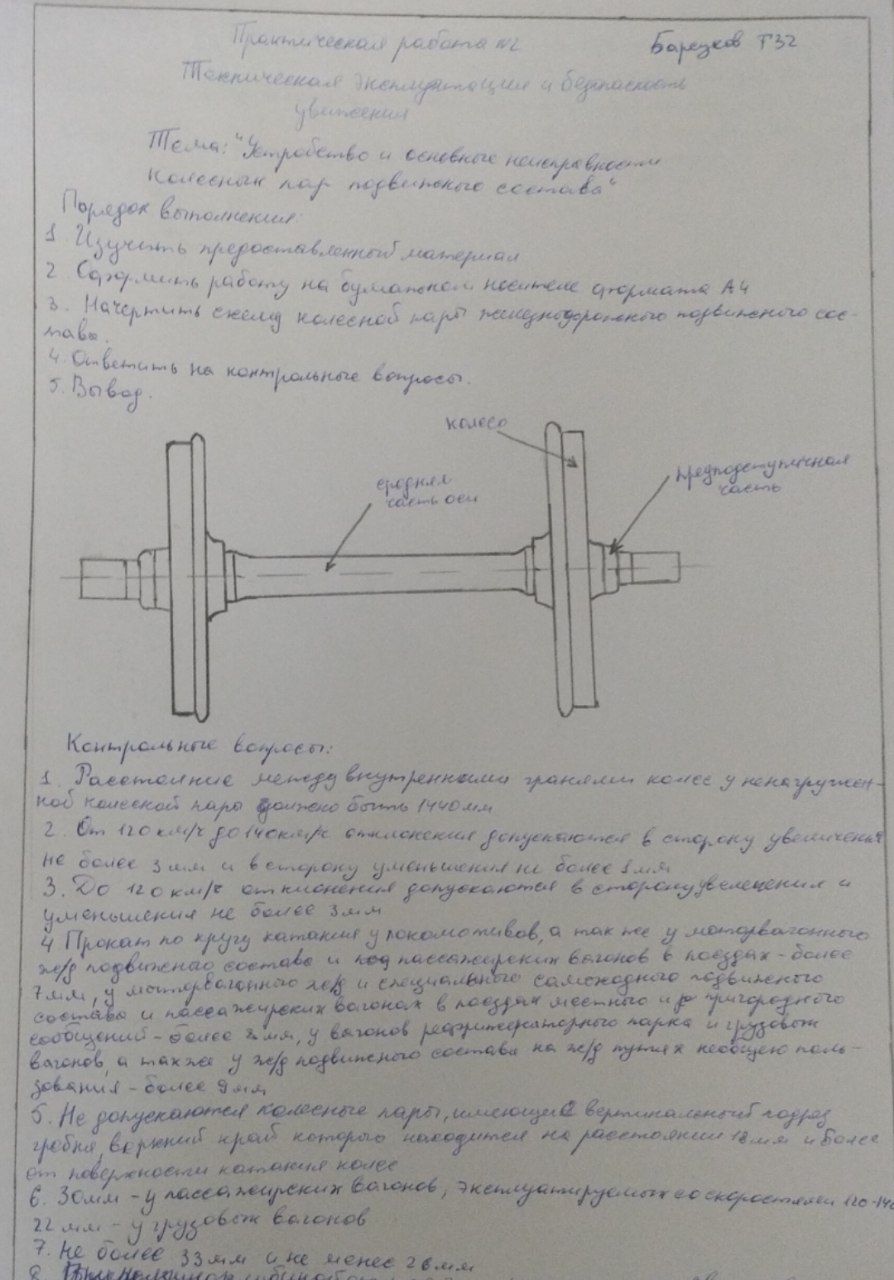 Практическая работа №2
Барезков Т32
Техническая эксплуатация и безопасность
движения
Тема: "Устройство и основные неисправности
колесных пар подвижного состава"
Порядок выполнения:
1. Изучить предоставленный материал
2. Оформить работу на бумажном носителе формата А4
3. Начертить схему колесной пары железнодорожного подвижного сос-
тава.
4. Ответить на контрольные вопросы.
5. Вывод.
колесо
средняя
часть оси
предподступичная
часть
Контрольные вопросы:
1. Расстояние между внутренними гранями колес у ненагружен-
ной колесной пары должно быть 1440мм
2. От 120км/ч до 140км/ч отклонения допускаются в сторону увеличения
не более 3мм и в сторону уменьшения не более 1мм
3. До 120км/ч отклонения допускаются в сторону увелецения и
уменьшения не более 3мм
4 Прокат по кругу катания у локомотивов, а так же у моторвагонного
ж/д подвижного состава и пассажирских вагонов в поездах - более
7мм, у моторвагонного ж/д и специального самоходного подвижного
состава и пассажирских вагонах в поездах местного и пригородного
сообщений - более 8мм, у вагонов рефрижераторного парка и грузовых
вагонов, а также у ж/д подвижного состава на ж/д путях необщего поль-
зования - более 9мм
5. Не допускаются колесные пары, имеющие вертикальный подрез
гребня, верхний край которого находится на расстоянии 18мм и более
от поверхности катания колес
6. 30мм - у пассажирских вагонов, эксплуатируемых со скоростями 120-140
22мм - у грузовых вагонов
7. Не более 33мм и не менее 26мм
8.